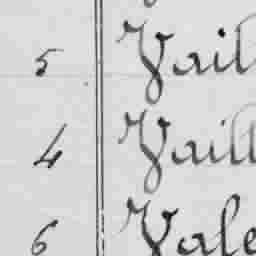 5 Vail
4 Vaill
6 Vale